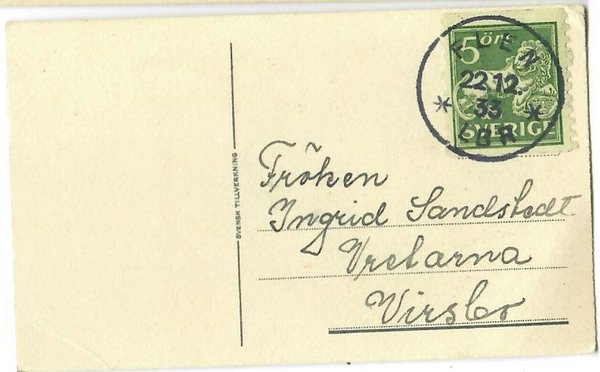 5 öre
FLEN
22.12.
33
SVERIGE
LBR
SVENSK TILLVERKNING
Fröken
Ingrid Sandstedt
Vretarna
Virsbo